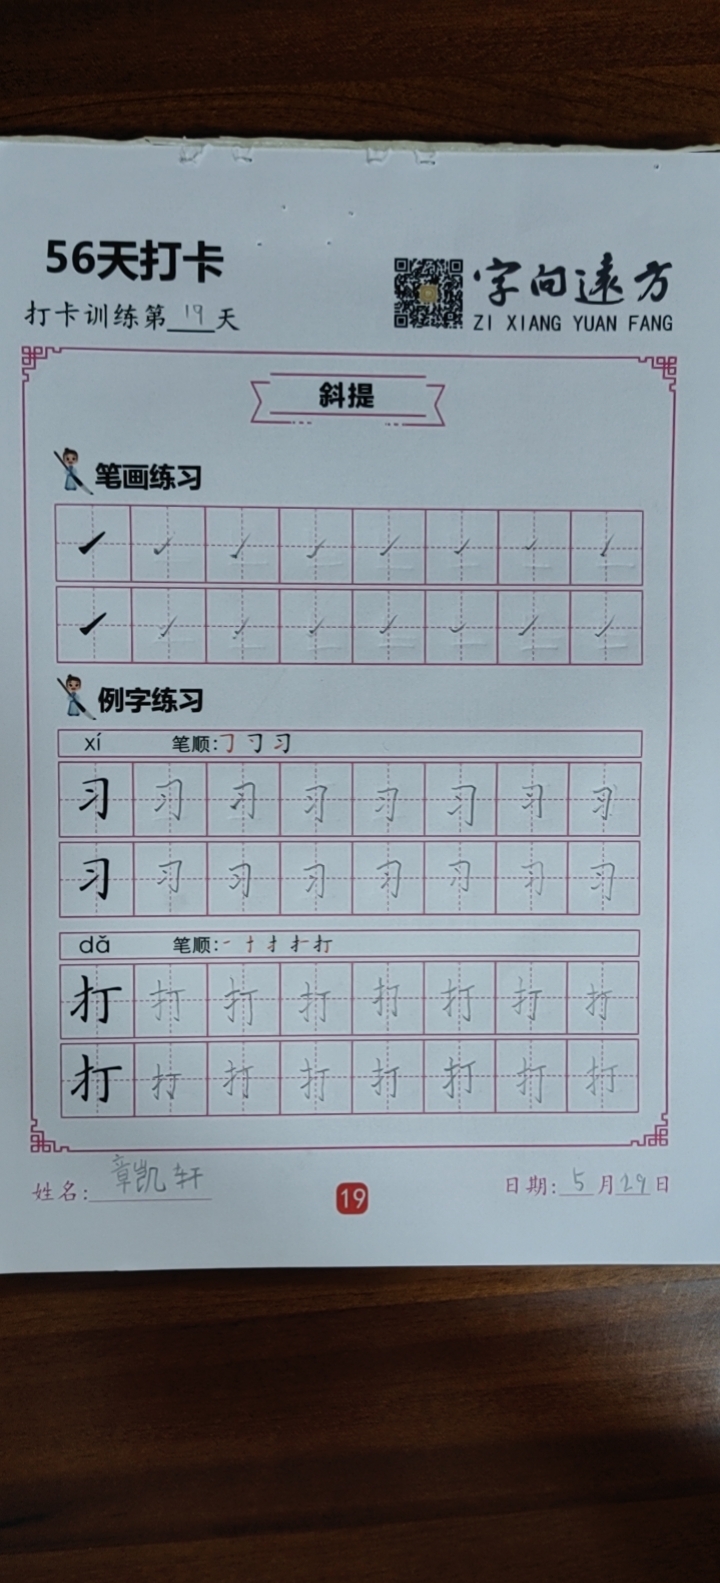 56天打卡
打卡训练第19天
字向遠方
ZI XIANG YUAN FANG
斜提
笔画练习
例字练习
xí 笔顺:
习 习 习 习 习 习 习 习
习 习 习 习 习 习 习 习
dǎ 笔顺:
打 打 打 打 打 打 打 打
打 打 打 打 打 打 打 打
姓名:章凯轩
19
日期:5月29日